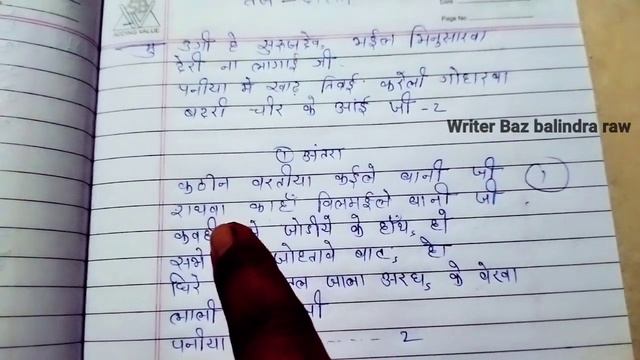 Page No
मु उगी हे सुरुजदेव, भईल भिनुसारवा
देरी ना लागाई जी.
पनीया मे खाढ़ तिवई करेली गोहारवा
बदरी चीर के आई जी -2
Writer Baz balindra raw
① अंतरा
कठीन वरतीया कईले बानी जी ①
रायवा काहाँ विलमईले बानी जी.
जोडीये के हाँथ, हो
सभे जोहतावे बाट, हो
धिरे जाला अरघ, के वेरवा
लाली
पनीया ------ 2